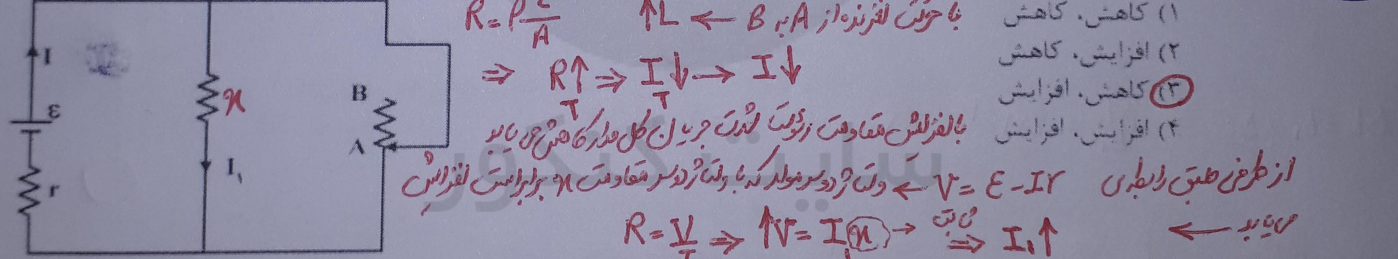 ۱) کاهش، کاهش
۲) افزایش، کاهش
۳) کاهش، افزایش
۴) افزایش، افزایش
با حرکت لغزنده از A به B → L↑
R = ρ L/A
⇒ R↑ ⇒ I↓ → I↓
T T
با افزایش مقاومت رئوستا شدت جریان کل مدار کاهش می یابد
از طرفی طبق رابطه ی V = ε - Ir ← ولتاژ دو سر مولد که با ولتاژ دو سر مقاومت x برابر است افزایش
می یابد ←
R = V/I ⇒ ↑V = I₁x → ثابت ⇒ I₁↑
I
ε
r
x
I₁
B
A
سایت کنکور